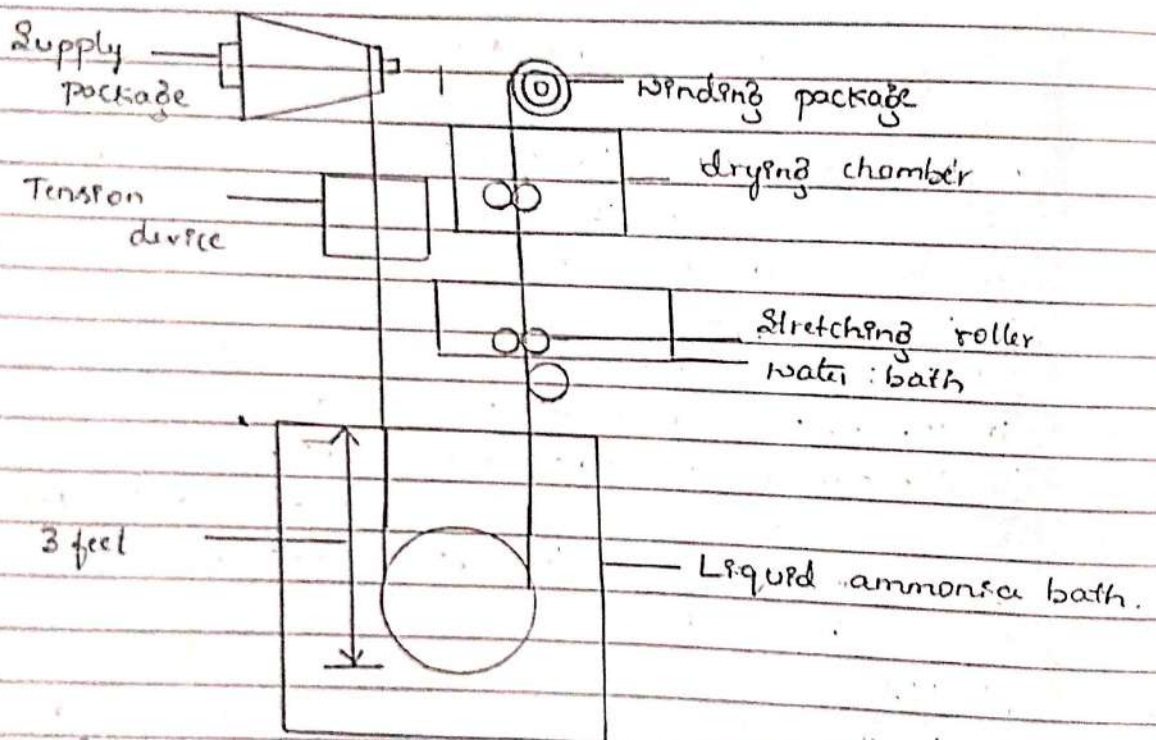 Supply
package
winding package
drying chamber
Tension
device
Stretching roller
water bath
3 feet
Liquid ammonia bath.